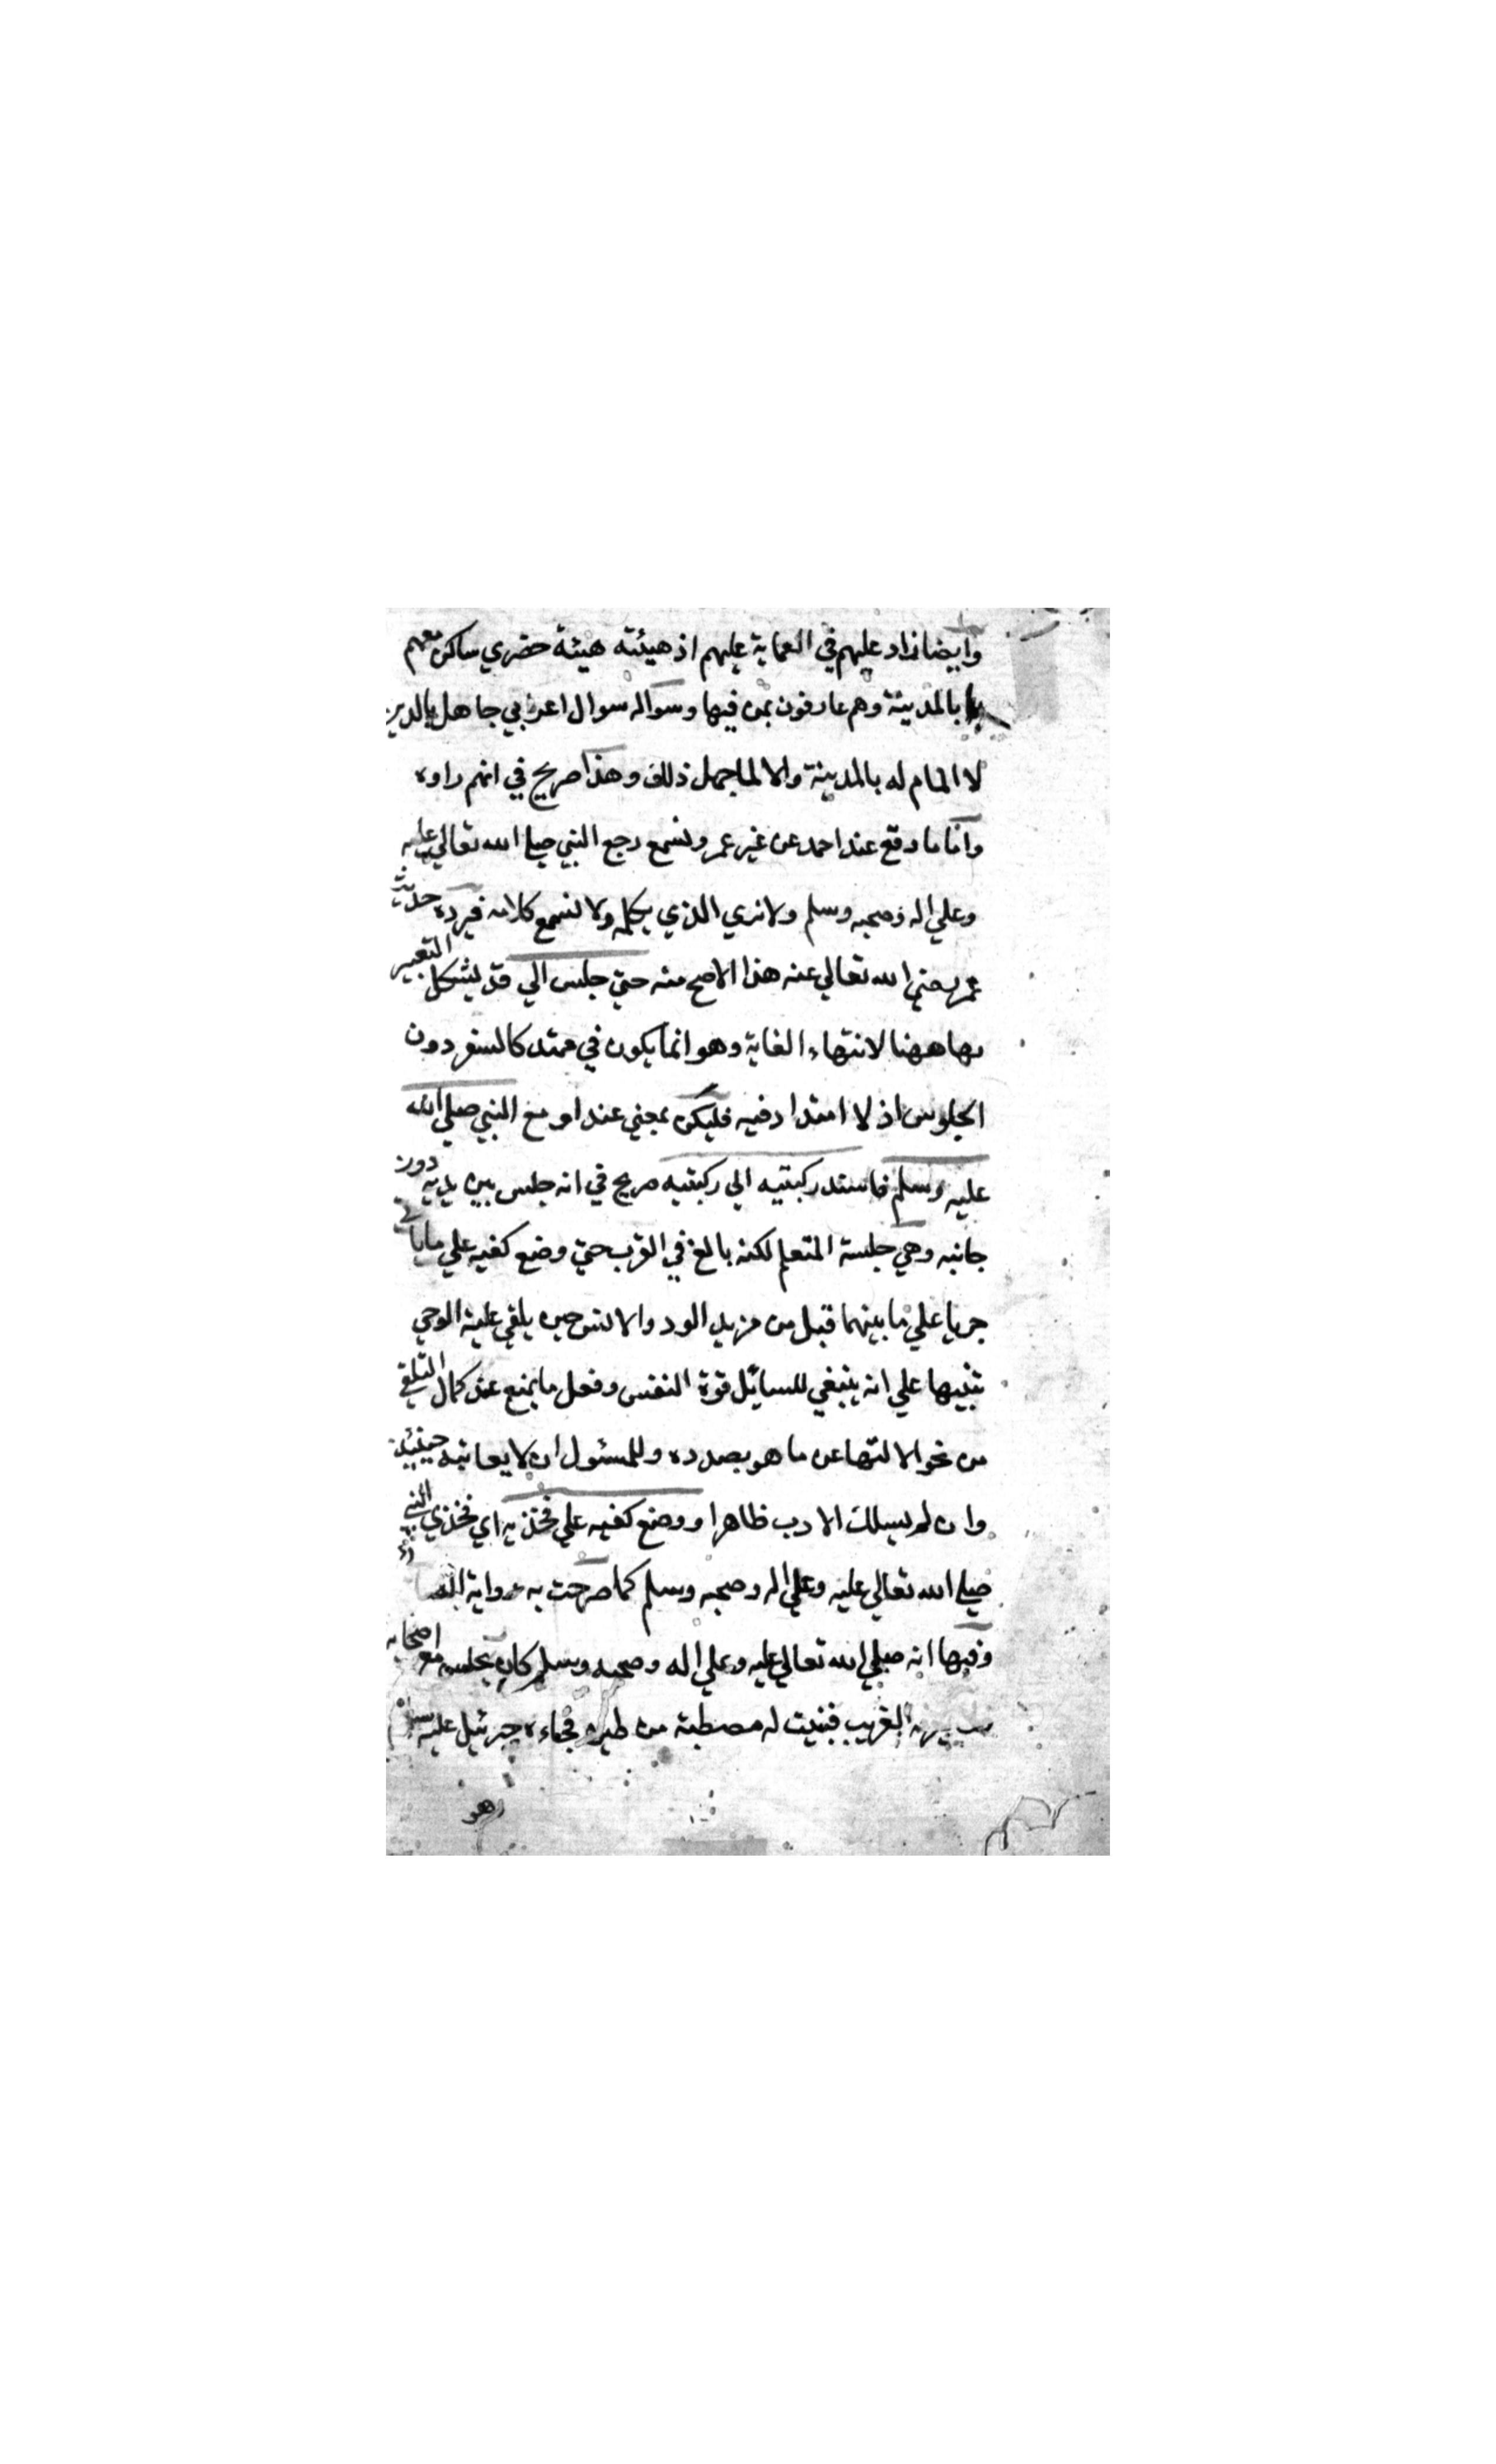 وايضا زاد عليهم في العماية عليهم اذ هيئته هيئة حضري ساكن معهم
بالمدينة وهم عارفون بمن فيها وسواله سوال اعرابي جاهل بالدين
لا المام له بالمدينة والا لما جهل ذلك وهذا صريح في انهم راوه
واما ما وقع عند احمد عن غير عمر ونسمع رجع النبي صلي الله تعالي عليه
وعلي اله وصحبه وسلم ولا نري الذي يكلمه ولا نسمع كلامه فيرده حديث
عمر رضي الله تعالي عنه هذا الاصح منه حتي جلس الي قد يشكل التعبير
بها ههنا لانتهاء الغاية وهو انما يكون في ممتد كالسفر دون
الجلوس اذ لا امتداد فيه فليكن بمعني عند او مع النبي صلي الله
عليه وسلم فاسند ركبتيه الي ركبتيه صريح في انه جلس بين يديه دون
جانبه وهي جلسة المتعلم لكنه بالغ في القرب حتي وضع كفيه علي ما ياتي
جريا علي ما بينهما قبل من مزيد الود والانس حين يلقي عليه الوحي
تنبيها علي انه ينبغي للسائل قوة النفس وفعل ما يمنع عند كمال التلقي
من نحو الالتها عن ما هو بصدده وللمسئول ان لا يعاتبه حينئذ
وان لم يسلك الادب ظاهرا ووضع كفيه علي فخذيه اي فخذي النبي
صلي الله تعالي عليه وعلي اله وصحبه وسلم كما صرحت به رواية
وفيها انه صلي الله تعالي عليه وعلي اله وصحبه وسلم كان يجلس مع اصحابه
الغريب فبنيت له مصطبة من طين فجاءه جبرئيل عليه
وهو